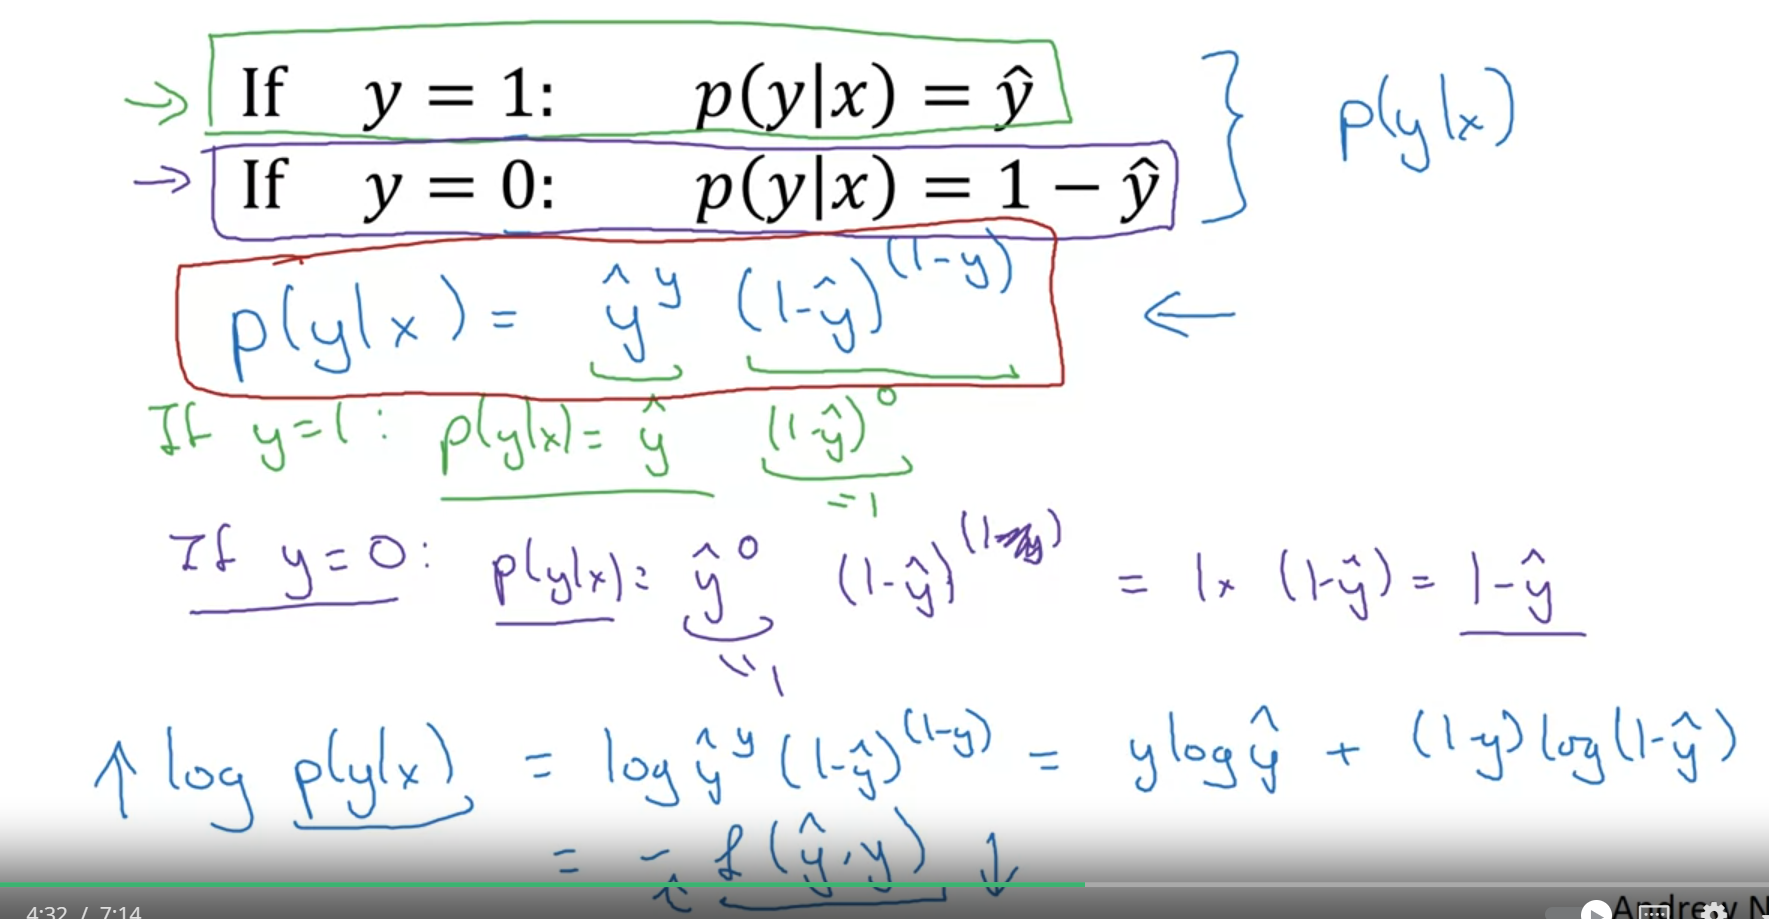 If y = 1: p(y|x) = ŷ
If y = 0: p(y|x) = 1 − ŷ
p(y|x)
p(y|x) = ŷ^y (1-ŷ)^(1-y) ←
If y=1: p(y|x) = ŷ (1-ŷ)^0
=1
If y=0: p(y|x) = ŷ^0 (1-ŷ)^(1-y) = 1x (1-ŷ) = 1-ŷ
1
↑ log p(y|x) = log ŷ^y (1-ŷ)^(1-y) = y log ŷ + (1-y) log(1-ŷ)
= - ℒ(ŷ,y) ↓
4:32 / 7:14
Andrew N